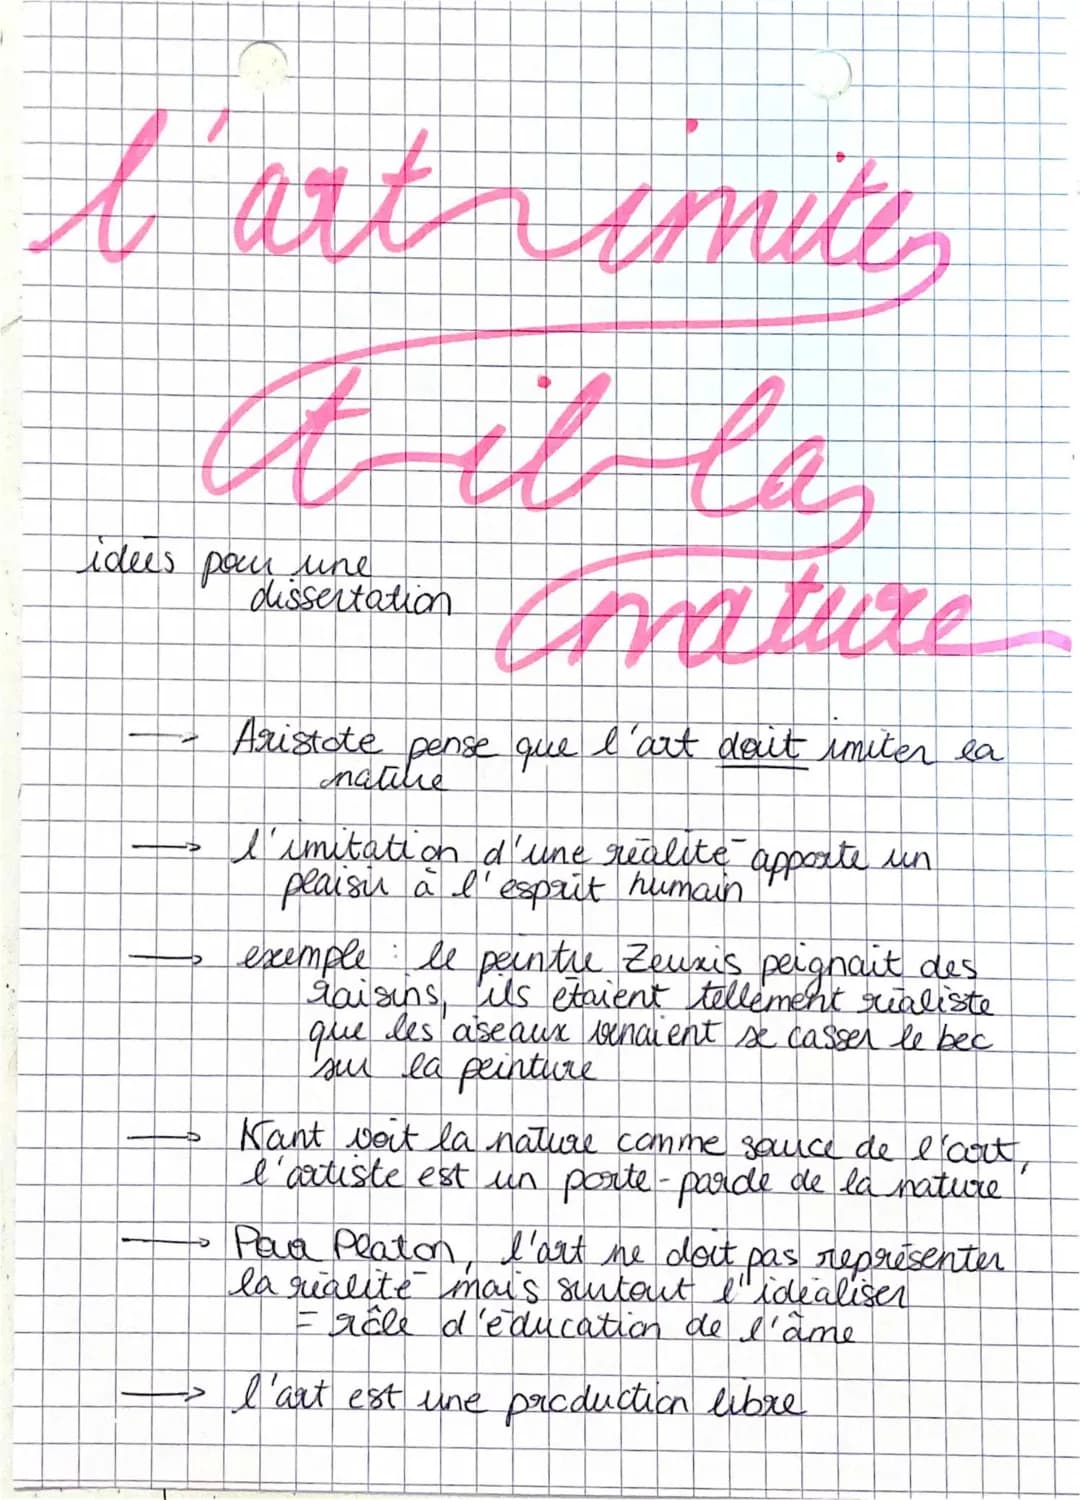 l'art imite
t-il la
nature
idées pour une
dissertation
→ Aristote pense que l'art doit imiter la
nature
→ l'imitation d'une réalité apporte un
plaisir à l'esprit humain
→ exemple : le peintre Zeuxis peignait des
raisins, ils étaient tellement réaliste
que les oiseaux venaient se casser le bec
sur la peinture
→ Kant voit la nature comme source de l'art,
l'artiste est un porte-parole de la nature
→ Pour Platon, l'art ne doit pas représenter
la réalité mais surtout l'idéaliser
= rôle d'éducation de l'âme
→ l'art est une production libre